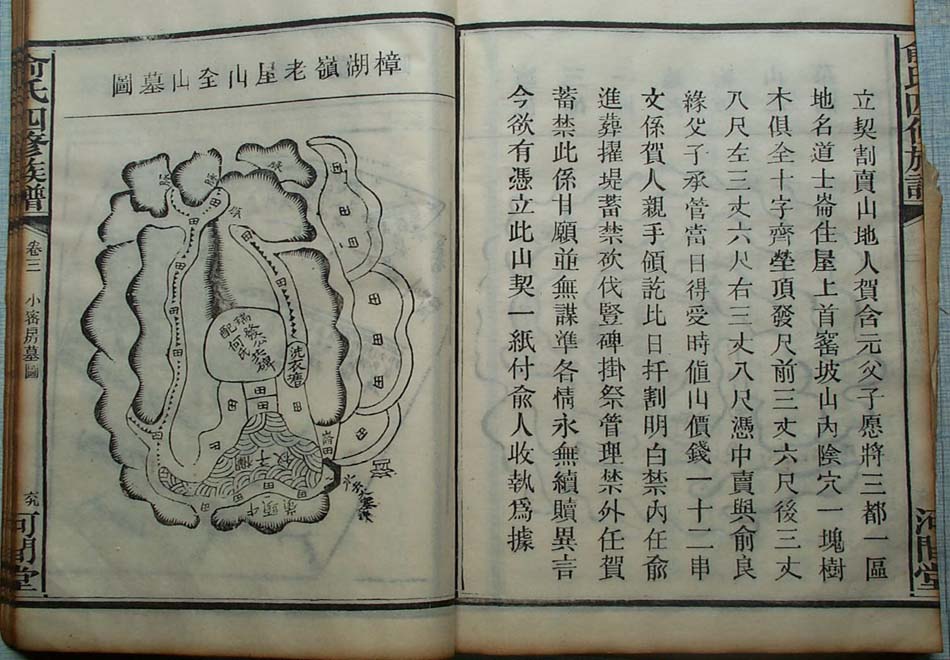 立契割賣山地人賀含元父子愿將三都一區
地名道士崙住屋上首窰坡山內陰穴一塊樹
木俱全十字齊塋頂發尺前三丈六尺後三丈
八尺左三丈六尺右三丈八尺憑中賣與俞良
緣父子承管當日得受時值山價錢一十二串
文係賀人親手領訖比日扦割明白禁內任俞
進葬擢堤蓄禁砍伐豎碑掛祭管理禁外任賀
蓄禁此係甘願並無謀準各情永無續贖異言
今欲有憑立此山契一紙付俞人收執爲據
樟湖嶺老屋山全山墓圖
瑞發公墓碑
配何氏
洗衣磨
田
俞氏四修族譜
卷三
小密房墓圖
河間堂
河間堂